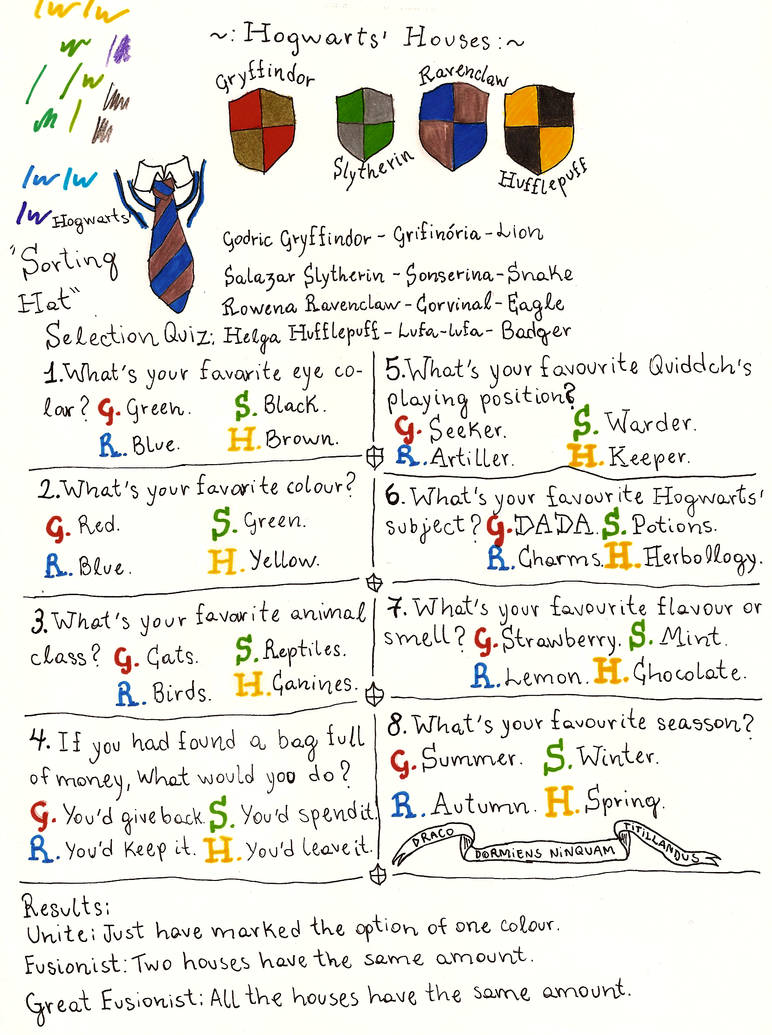 ~:Hogwarts' Houses:~
Gryffindor
Slytherin
Ravenclaw
Hufflepuff
Hogwarts'
"Sorting
Hat"
Godric Gryffindor - Grifinória - Lion
Salazar Slytherin - Sonserina - Snake
Rowena Ravenclaw - Corvinal - Eagle
Selection Quiz: Helga Hufflepuff - Lufa-lufa - Badger
1. What's your favorite eye co-
lor? G. Green. S. Black.
R. Blue. H. Brown.
2. What's your favorite colour?
G. Red. S. Green.
R. Blue. H. Yellow.
3. What's your favorite animal
class? G. Cats. S. Reptiles.
R. Birds. H. Canines.
4. If you had found a bag full
of money, what would you do?
G. You'd give back. S. You'd spend it.
R. You'd keep it. H. You'd leave it.
5. What's your favourite Quiddch's
playing position?
G. Seeker. S. Warder.
R. Artiller. H. Keeper.
6. What's your favourite Hogwarts'
subject? G. DADA. S. Potions.
R. Charms. H. Herbollogy.
7. What's your favourite flavour or
smell? G. Strawberry. S. Mint.
R. Lemon. H. Chocolate.
8. What's your favourite seasson?
G. Summer. S. Winter.
R. Autumn. H. Spring.
DRACO DORMIENS NINQUAM TITILLANDUS
Results:
Unite: Just have marked the option of one colour.
Fusionist: Two houses have the same amount.
Great Fusionist: All the houses have the same amount.